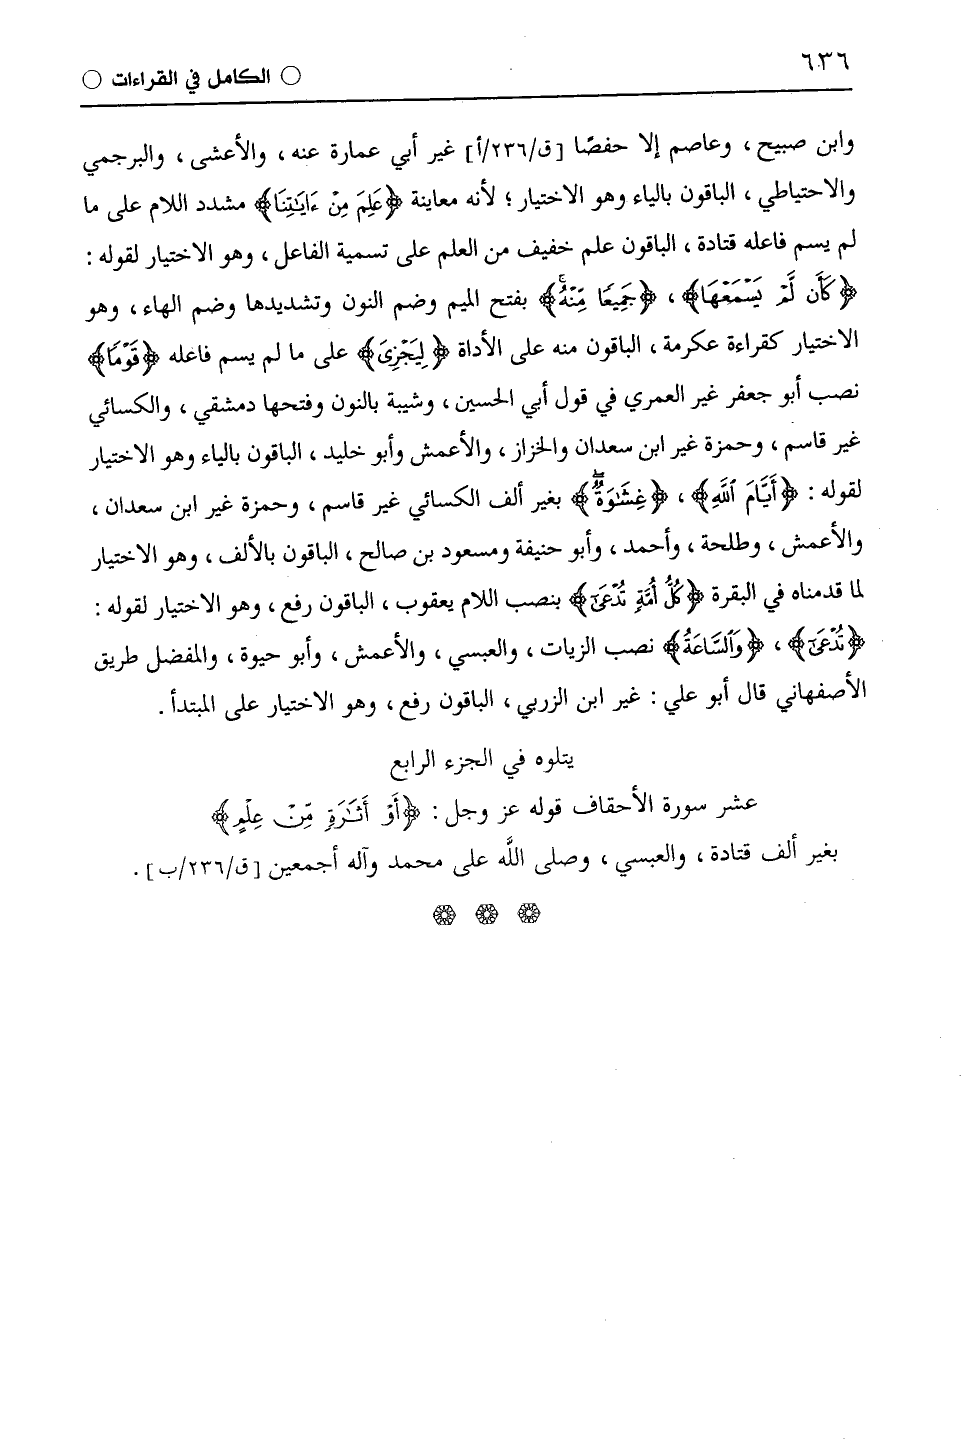 ٦٣٦
○ الكامل في القراءات ○
وابن صبيح ، وعاصم إلا حفصًا [ق/٢٣٦/أ] غير أبي عمارة عنه ، والأعشى ، والبرجمي
والاحتياطي ، الباقون بالياء وهو الاختيار ؛ لأنه معاينة ﴿عَلِمَ مِنْ ءَايَٰتِنَا﴾ مشدد اللام على ما
لم يسم فاعله قتادة ، الباقون علم خفيف من العلم على تسمية الفاعل ، وهو الاختيار لقوله :
﴿كَأَن لَّمْ يَسْمَعْهَا﴾ ، ﴿جَمِيعًا مِّنْهُ ۚ﴾ بفتح الميم وضم النون وتشديدها وضم الهاء ، وهو
الاختيار كقراءة عكرمة ، الباقون منه على الأداة ﴿لِيَجْزِىَ﴾ على ما لم يسم فاعله ﴿قَوْمًا﴾
نصب أبو جعفر غير العمري في قول أبي الحسين ، وشيبة بالنون وفتحها دمشقي ، والكسائي
غير قاسم ، وحمزة غير ابن سعدان والخزاز ، والأعمش وأبو خليد ، الباقون بالياء وهو الاختيار
لقوله : ﴿أَيَّامَ ٱللَّهِ﴾ ، ﴿غِشَٰوَةٌ ۖ﴾ بغير ألف الكسائي غير قاسم ، وحمزة غير ابن سعدان ،
والأعمش ، وطلحة ، وأحمد ، وأبو حنيفة ومسعود بن صالح ، الباقون بالألف ، وهو الاختيار
لما قدمناه في البقرة ﴿كُلُّ أُمَّةٍ تُدْعَىٰٓ﴾ بنصب اللام يعقوب ، الباقون رفع ، وهو الاختيار لقوله :
﴿تُدْعَىٰٓ﴾ ، ﴿وَٱلسَّاعَةُ﴾ نصب الزيات ، والعبسي ، والأعمش ، وأبو حيوة ، والمفضل طريق
الأصفهاني قال أبو علي : غير ابن الزربي ، الباقون رفع ، وهو الاختيار على المبتدأ .
يتلوه في الجزء الرابع
عشر سورة الأحقاف قوله عز وجل : ﴿أَوْ أَثَٰرَةٍ مِّنْ عِلْمٍ﴾
بغير ألف قتادة ، والعبسي ، وصلى اللَّه على محمد وآله أجمعين [ق/٢٣٦/ب] .